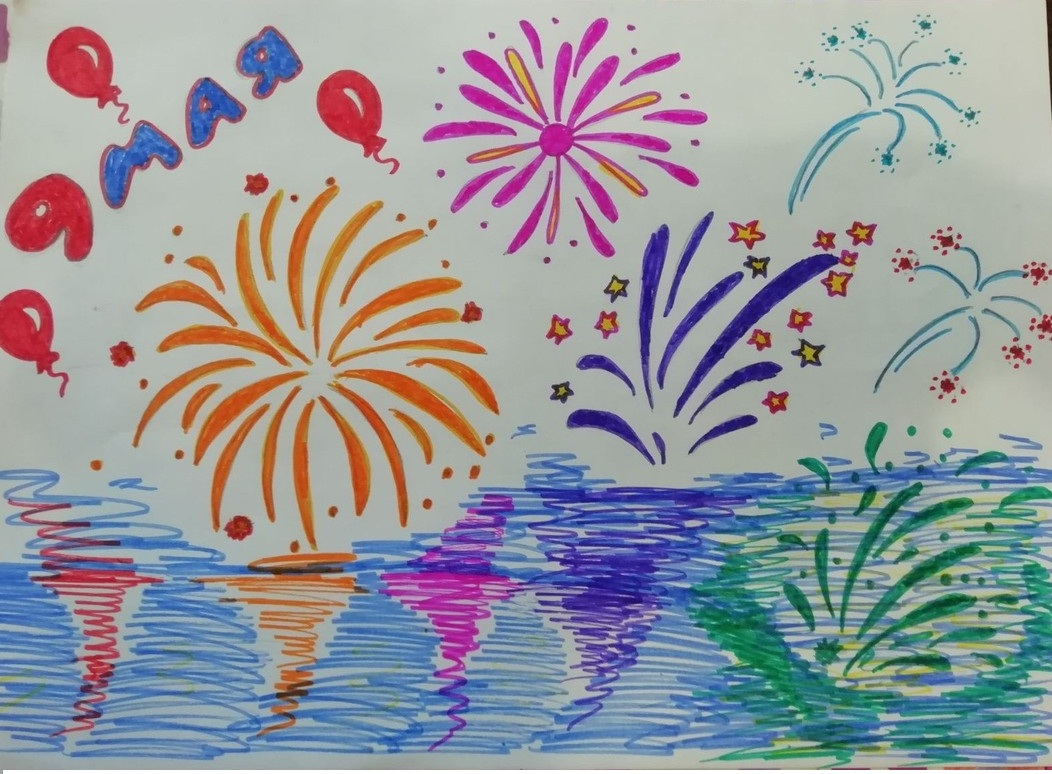 9 МАЯ